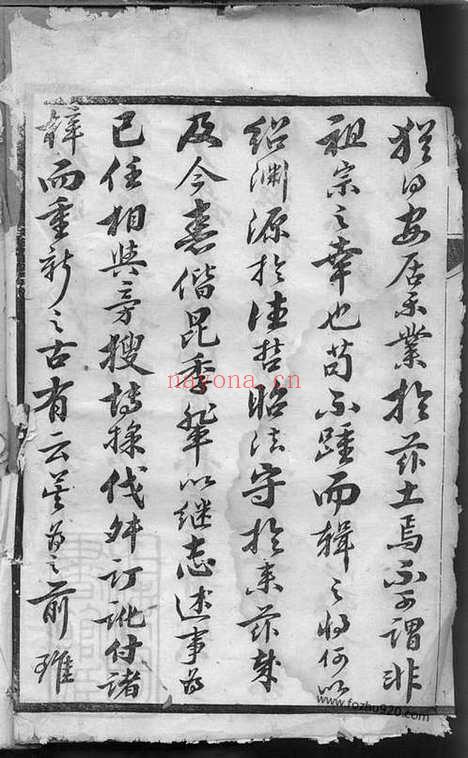 猶得安居樂業於茲土焉不可謂非
祖宗之幸也苟不踵而輯之將何以
紹淵源於往哲昭法守於來茲哉
及今喜偕昆季輩以繼志述事為
己任相與旁搜博採伐舛訂訛付諸
梓而重新之古有云莫為之前雖
nayona.cn
www.fozhu920.com